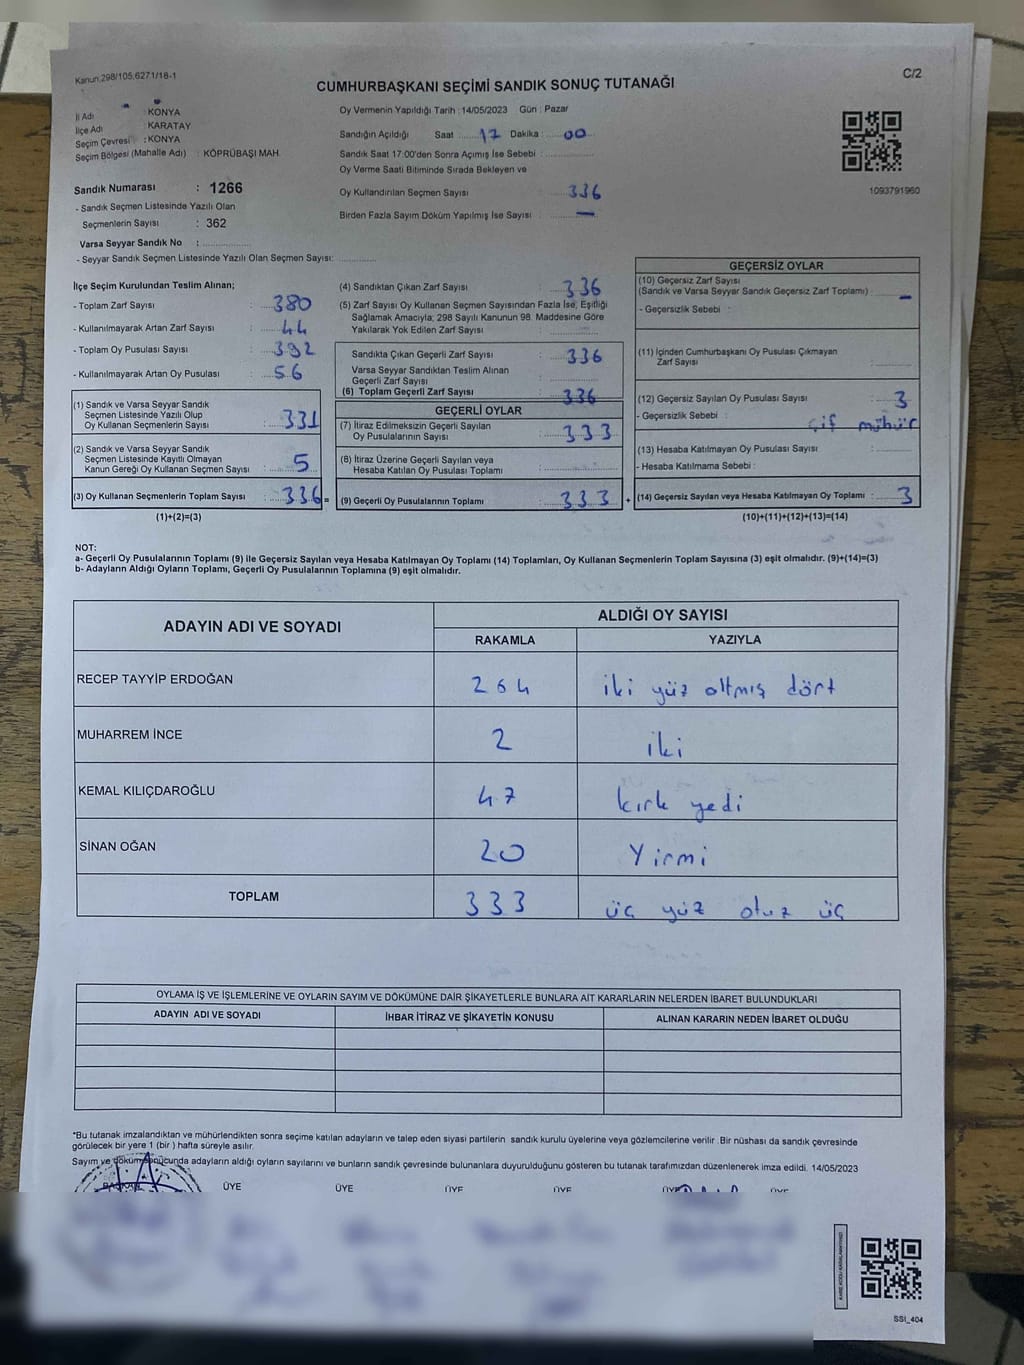 Kanun:298/105;6271/18-1
CUMHURBAŞKANI SEÇİMİ SANDIK SONUÇ TUTANAĞI
C/2
İl Adı : KONYA
İlçe Adı : KARATAY
Seçim Çevresi : KONYA
Seçim Bölgesi (Mahalle Adı) : KÖPRÜBAŞI MAH.
Sandık Numarası : 1266
- Sandık Seçmen Listesinde Yazılı Olan
Seçmenlerin Sayısı : 362
Varsa Seyyar Sandık No :
- Seyyar Sandık Seçmen Listesinde Yazılı Olan Seçmen Sayısı:
Oy Vermenin Yapıldığı Tarih : 14/05/2023 Gün : Pazar
Sandığın Açıldığı Saat : 17 Dakika : 00
Sandık Saat 17:00'den Sonra Açımış İse Sebebi :
Oy Verme Saati Bitiminde Sırada Bekleyen ve
Oy Kullandırılan Seçmen Sayısı : 336
Birden Fazla Sayım Döküm Yapılmış İse Sayısı : —
1093791960
İlçe Seçim Kurulundan Teslim Alınan;
- Toplam Zarf Sayısı : 380
- Kullanılmayarak Artan Zarf Sayısı : 44
- Toplam Oy Pusulası Sayısı : 392
- Kullanılmayarak Artan Oy Pusulası : 56
(1) Sandık ve Varsa Seyyar Sandık
Seçmen Listesinde Yazılı Olup
Oy Kullanan Seçmenlerin Sayısı : 331
(2) Sandık ve Varsa Seyyar Sandık
Seçmen Listesinde Kayıtlı Olmayan
Kanun Gereği Oy Kullanan Seçmen Sayısı : 5
(3) Oy Kullanan Seçmenlerin Toplam Sayısı : 336 =
(1)+(2)=(3)
(4) Sandıktan Çıkan Zarf Sayısı : 336
(5) Zarf Sayısı Oy Kullanan Seçmen Sayısından Fazla İse, Eşitliği
Sağlamak Amacıyla; 298 Sayılı Kanunun 98. Maddesine Göre
Yakılarak Yok Edilen Zarf Sayısı :
Sandıkta Çıkan Geçerli Zarf Sayısı : 336
Varsa Seyyar Sandıktan Teslim Alınan
Geçerli Zarf Sayısı :
(6) Toplam Geçerli Zarf Sayısı : 336
GEÇERLİ OYLAR
(7) İtiraz Edilmeksizin Geçerli Sayılan
Oy Pusulalarının Sayısı : 333
(8) İtiraz Üzerine Geçerli Sayılan veya
Hesaba Katılan Oy Pusulası Toplamı :
(9) Geçerli Oy Pusulalarının Toplamı : 333 +
GEÇERSİZ OYLAR
(10) Geçersiz Zarf Sayısı
(Sandık ve Varsa Seyyar Sandık Geçersiz Zarf Toplamı) : —
- Geçersizlik Sebebi :
(11) İçinden Cumhurbaşkanı Oy Pusulası Çıkmayan
Zarf Sayısı :
(12) Geçersiz Sayılan Oy Pusulası Sayısı : 3
- Geçersizlik Sebebi : Çif mühür
(13) Hesaba Katılmayan Oy Pusulası Sayısı :
- Hesaba Katılmama Sebebi :
(14) Geçersiz Sayılan veya Hesaba Katılmayan Oy Toplamı : 3
(10)+(11)+(12)+(13)=(14)
NOT:
a- Geçerli Oy Pusulalarının Toplamı (9) ile Geçersiz Sayılan veya Hesaba Katılmayan Oy Toplamı (14) Toplamları, Oy Kullanan Seçmenlerin Toplam Sayısına (3) eşit olmalıdır. (9)+(14)=(3)
b- Adayların Aldığı Oyların Toplamı, Geçerli Oy Pusulalarının Toplamına (9) eşit olmalıdır.
ADAYIN ADI VE SOYADI
ALDIĞI OY SAYISI
RAKAMLA YAZIYLA
RECEP TAYYİP ERDOĞAN 264 iki yüz altmış dört
MUHARREM İNCE 2 iki
KEMAL KILIÇDAROĞLU 47 kırk yedi
SİNAN OĞAN 20 Yirmi
TOPLAM 333 üç yüz otuz üç
OYLAMA İŞ VE İŞLEMLERİNE VE OYLARIN SAYIM VE DÖKÜMÜNE DAİR ŞİKAYETLERLE BUNLARA AİT KARARLARIN NELERDEN İBARET BULUNDUKLARI
ADAYIN ADI VE SOYADI İHBAR İTİRAZ VE ŞİKAYETİN KONUSU ALINAN KARARIN NEDEN İBARET OLDUĞU
*Bu tutanak imzalandıktan ve mühürlendikten sonra seçime katılan adayların ve talep eden siyasi partilerin sandık kurulu üyelerine veya gözlemcilerine verilir .Bir nüshası da sandık çevresinde
görülecek bir yere 1 (bir ) hafta süreyle asılır.
Sayım ve döküm sonucunda adayların aldığı oyların sayılarını ve bunların sandık çevresinde bulunanlara duyurulduğunu gösteren bu tutanak tarafımızdan düzenlenerek imza edildi. 14/05/2023
BAŞKAN ÜYE ÜYE ÜYE ÜYE ÜYE ÜYE
SSI_404